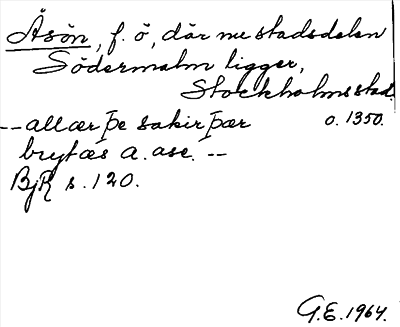 Åsön, f. ö, där nu stadsdelen
Södermalm ligger,
Stockholms stad.
-- allær þe sakir þær o. 1350.
brytæs a. asæ. --
BjR s. 120.
G.E. 1964.